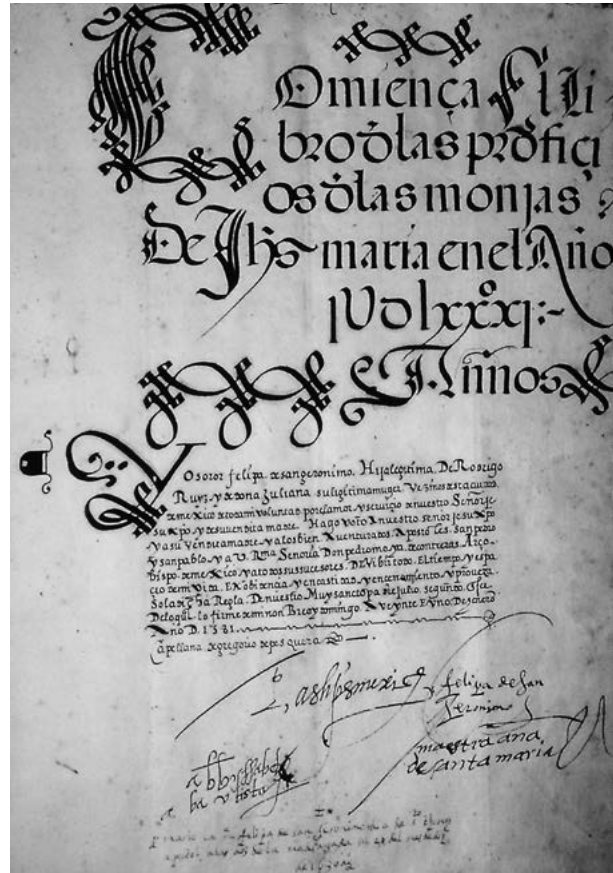 Comiença El Li
bro dlas profici
os dlas monjas
De Jhs maria en el Año
JU d lxxxj:~
T. Jnnos
Yo soror felipa de sangeronimo. Hija legitima. De Rodrigo
Ruyz. y de dona Juliana su ligitima muger. Vezinos desta ciudad
de mexico de todam voluntad por el amor y servicio de nuestro Señor Je
su xpo y de su vendita madre. Hago Voto A nuestro señor Jesu xpo
y a su vendita madre. y a los bien Aventurados. Apostoles. san pedro
y san pablo. y a V. Rma Señoria. Don pedro moya. de contreras. Arço.
bispo. de mexico. y a todos sus successores. De Vibir todo. El tiempo. y espa
cio de mi vida. En obidencia. y en castidad. y en cerramiento. y proveza.
So la dicha Regla. De nuestro Muy sancto padre Julio. segundo.
De lo qual lo firme de mi nombre oy domingo. A Veynte E Vno. De henero
Año D. 1581.
Capellan a gregorio de pesquera
P, archieps mexicā
felipa de san
Jeronimo
maestra ana
de santa maria
abbissa
bautista
felipa de san Jeronimo